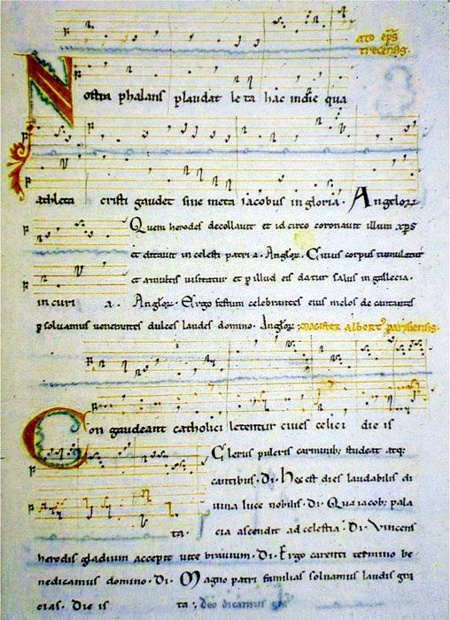 ato eps
trecensis.
Nostra phalans plaudat leta hac in die qua
athleta cristi gaudet sine meta iacobus in gloria. Anglor
Quem herodes decollauit et id circo coronauit illum xps
et ditauit in celesti patria. Anglor. Cuius corpus tumulatur
et a multis uisitatur et p illud eis datur salus in gallecia.
in curi a. Anglor. Ergo festum celebrantes eius melos decantantes
psoluamus uenerantes dulces laudes domino. Anglor. Magister albert9 parisiensis.
Congaudeant catholici letentur ciues celici die is
Clerus pulcris carminib; studeat atq;
cantibus. Di. Hec est dies laudabilis di
uina luce nobilis. Di. Qua iacob; pala
ta. cia ascendit ad celestia. Di. Vincens
herodis gladium accepit uite brauium. Di. Ergo carenti termino be
nedicamus domino. Di. Magno patri familias soluamus laudis gra
cias. Die is ta. deo dicamus